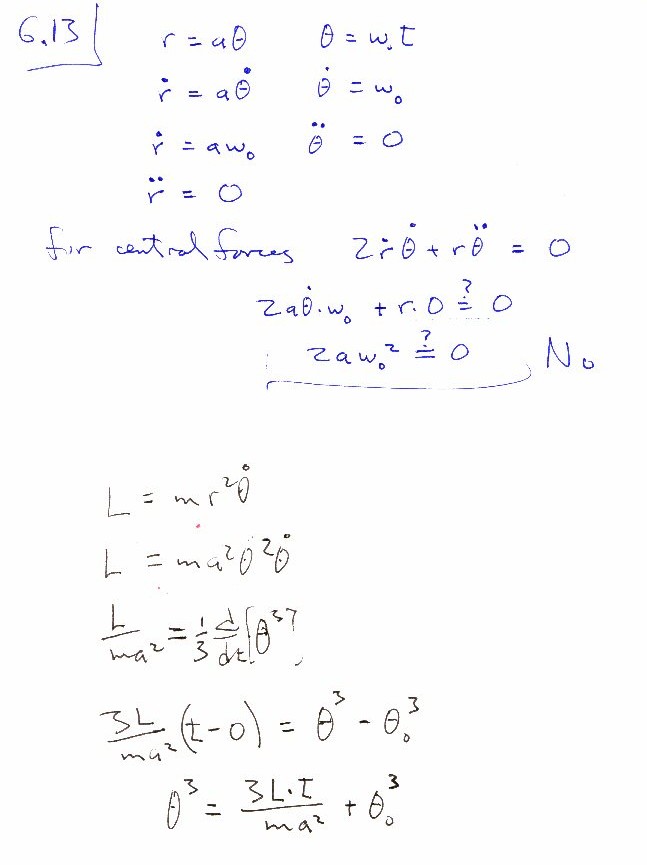 6.13
r = aθ θ = ω₀t
ṙ = aθ̇ θ̇ = ω₀
ṙ = aω₀ θ̈ = 0
r̈ = 0
for central forces 2ṙθ̇ + rθ̈ = 0
2aθ̇·ω₀ + r·0 ≟ 0
2aω₀² ≟ 0 No
L = mr²θ̇
L = ma²θ²θ̇
L/ma² = 1/3 d/dt[θ³]
3L/ma² (t-0) = θ³ - θ₀³
θ³ = 3L·t/ma² + θ₀³